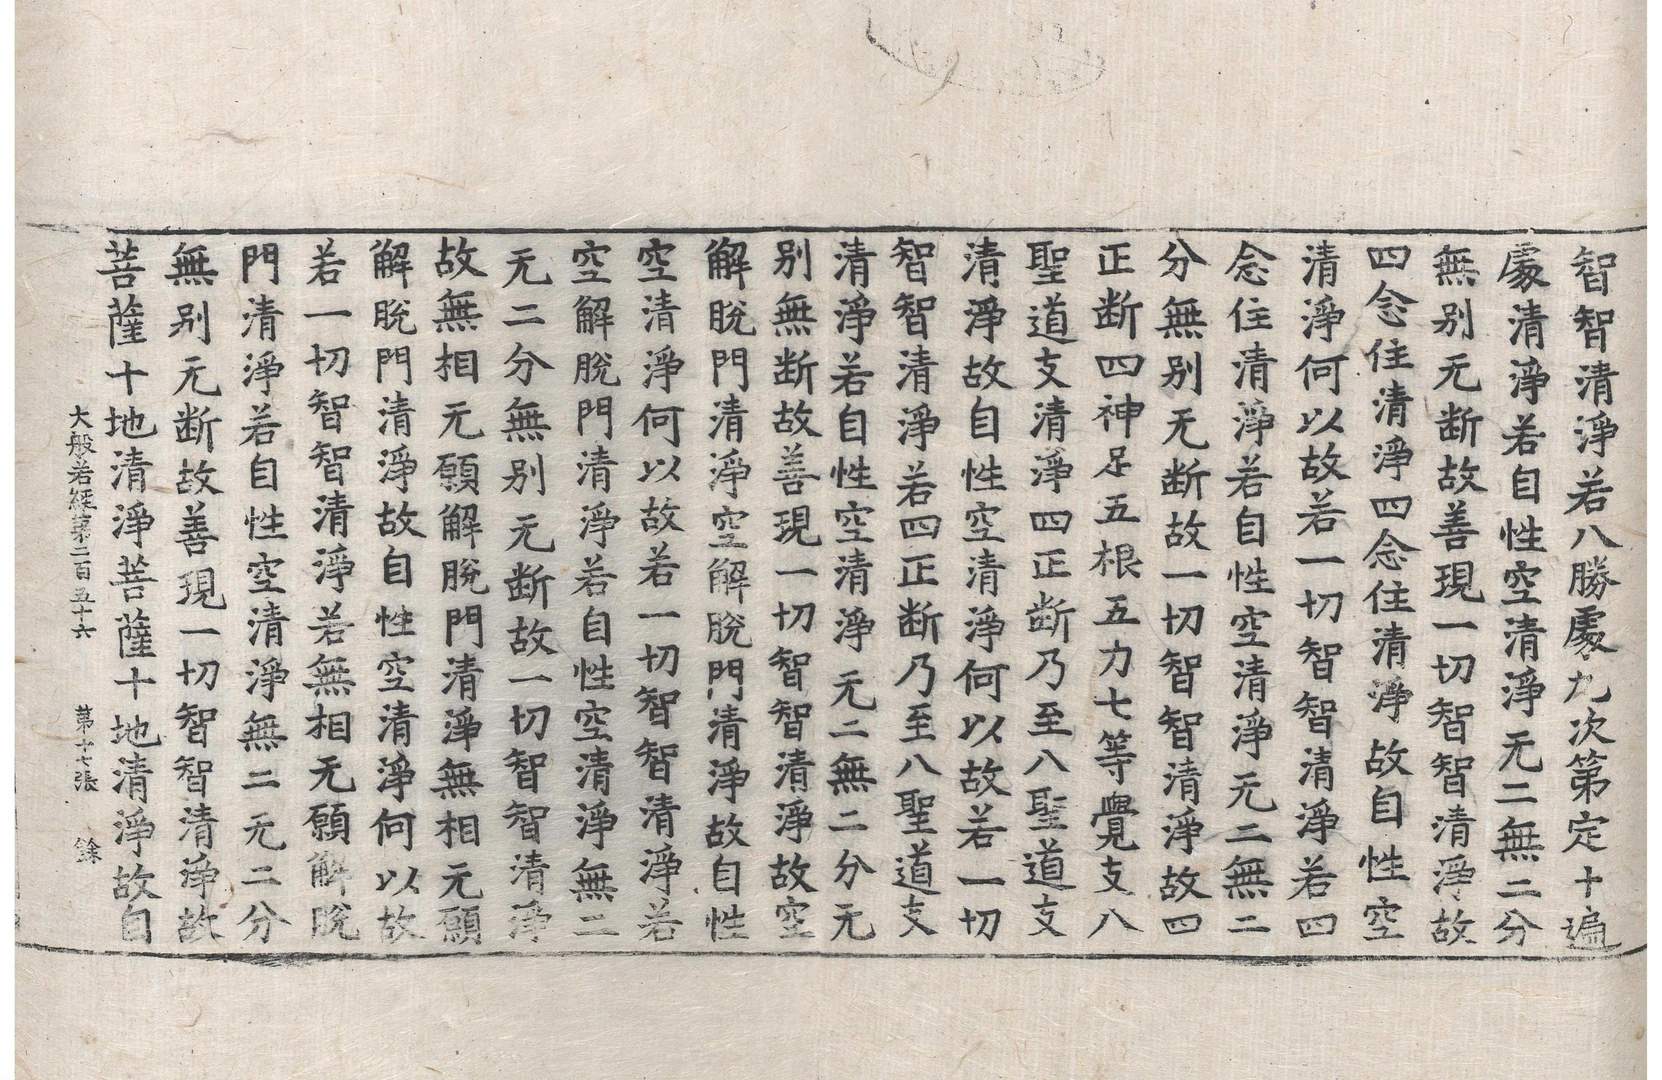 智智清淨若八勝處九次第定十遍
處清淨若自性空清淨无二無二分
無别无断故善現一切智智清淨故
四念住清淨四念住清淨故自性空
清淨何以故若一切智智清淨若四
念住清淨若自性空清淨无二無二
分無别无断故一切智智清淨故四
正断四神足五根五力七等覺支八
聖道支清淨四正断乃至八聖道支
清淨故自性空清淨何以故若一切
智智清淨若四正断乃至八聖道支
清淨若自性空清淨无二無二分无
别無断故善現一切智智清淨故空
解脫門清淨空解脫門清淨故自性
空清淨何以故若一切智智清淨若
空解脫門清淨若自性空清淨無二
无二分無别无断故一切智智清淨
故無相无願解脫門清淨無相无願
解脫門清淨故自性空清淨何以故
若一切智智清淨若無相无願解脫
門清淨若自性空清淨無二无二分
無别无断故善現一切智智清淨故
菩薩十地清淨菩薩十地清淨故自
大般若經苐二百五十六 苐十七張 餘